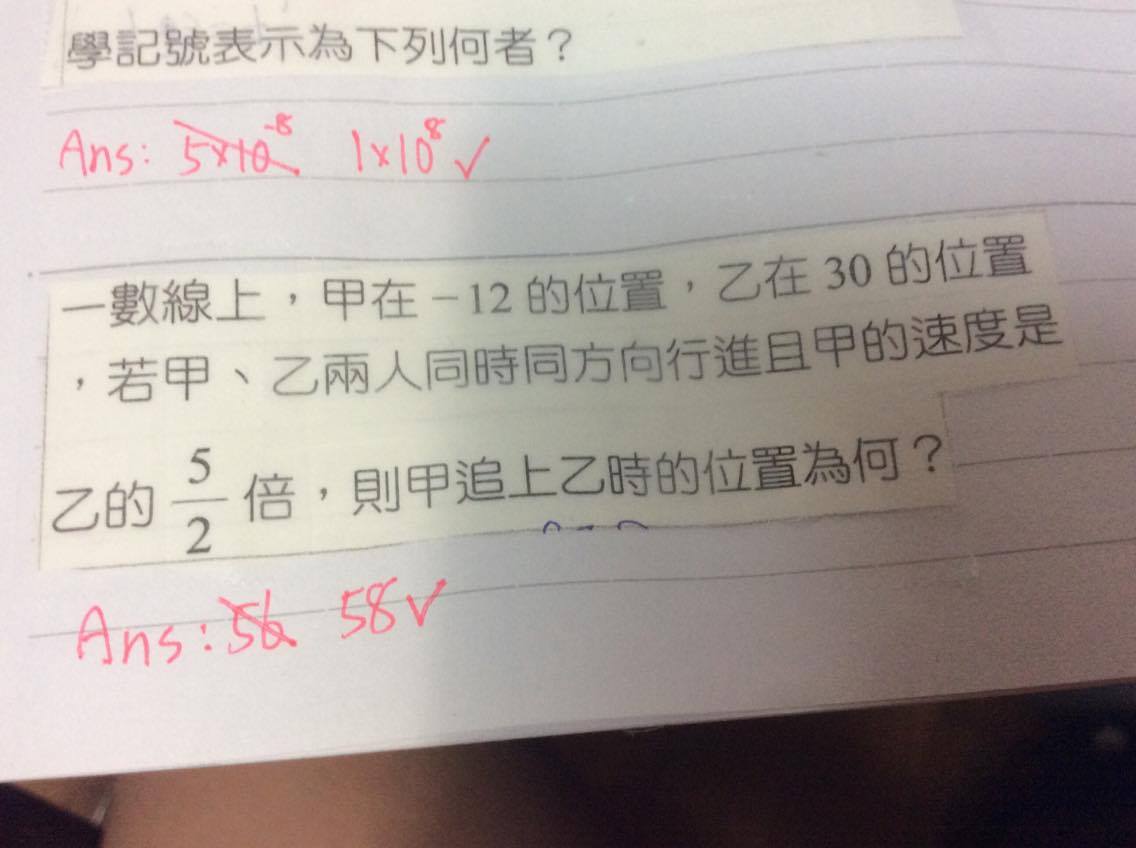 學記號表示為下列何者？
Ans: 5×10⁻⁸ 1×10⁸ ✓
一數線上，甲在－12的位置，乙在30的位置
，若甲、乙兩人同時同方向行進且甲的速度是
乙的 5/2 倍，則甲追上乙時的位置為何？
Ans: 56 58 ✓